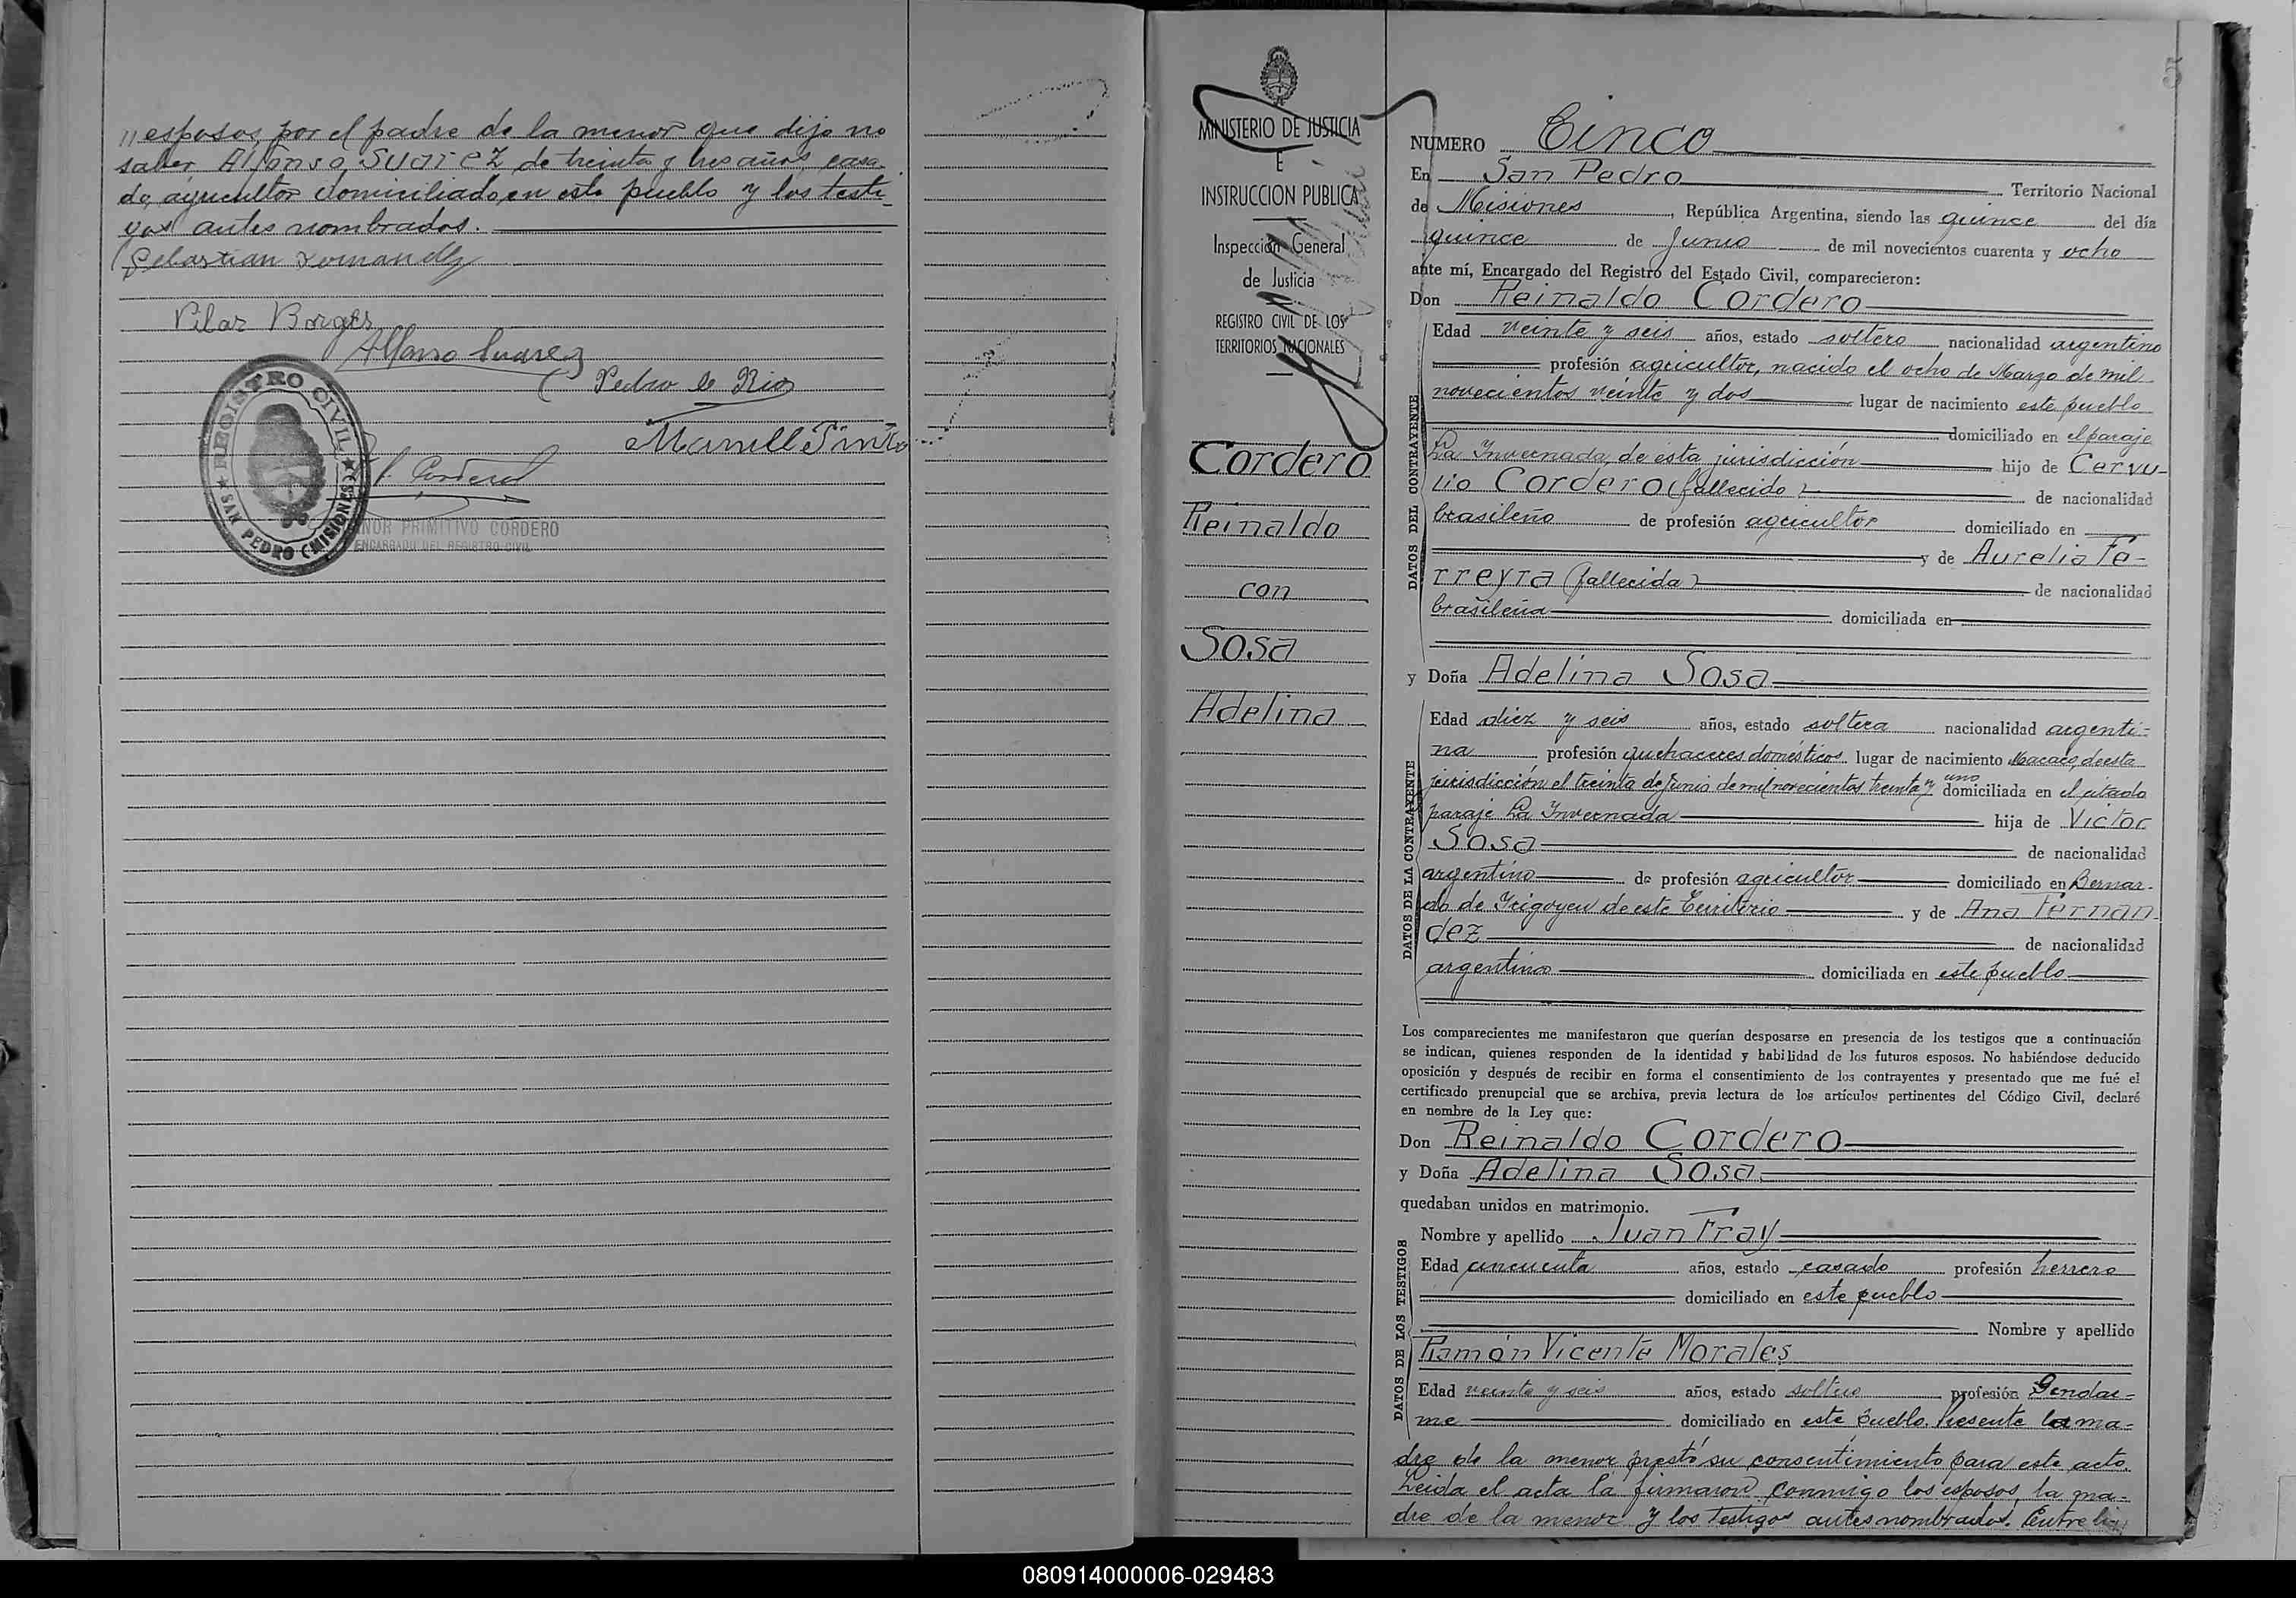 " esposos, por el padre de la menor que dijo no
saber, Alfonso Suarez de treinta y tres años, casa-
do, agricultor domiciliado en este pueblo y los testi-
gos antes nombrados.
Sebastian
Pilar Borges
Alfonso Suarez
Pedro de Rios
Manuel
REGISTRO CIVIL
SAN PEDRO (MISIONES)
P. Cordero
PRIMITIVO CORDERO
ENCARGADO DEL REGISTRO CIVIL
5
MINISTERIO DE JUSTICIA
E
INSTRUCCION PUBLICA
Inspección General
de Justicia
REGISTRO CIVIL DE LOS
TERRITORIOS NACIONALES
Cordero
Reinaldo
con
Sosa
Adelina
NUMERO Cinco
En San Pedro Territorio Nacional
de Misiones, República Argentina, siendo las quince del día
quince de Junio de mil novecientos cuarenta y ocho
ante mí, Encargado del Registro del Estado Civil, comparecieron:
Don Reinaldo Cordero
DATOS DEL CONTRAYENTE
Edad veinte y seis años, estado soltero nacionalidad argentino
profesión agricultor, nacido el ocho de Marzo de mil
novecientos veinte y dos lugar de nacimiento este pueblo
domiciliado en el paraje
La Invernada, de esta jurisdicción hijo de Cervu-
lio Cordero (fallecido) de nacionalidad
brasileño de profesión agricultor domiciliado en
y de Aurelia Fe-
rreyra (fallecida) de nacionalidad
brasileña domiciliada en
y Doña Adelina Sosa
DATOS DE LA CONTRAYENTE
Edad diez y seis años, estado soltera nacionalidad argenti-
na profesión quehaceres domésticos lugar de nacimiento Macaco, de esta
jurisdicción el treinta de Junio de mil novecientos treinta y uno domiciliada en el citado
paraje La Invernada hija de Victor
Sosa de nacionalidad
argentino de profesión agricultor domiciliado en Bernar-
do de Irigoyen de este Territorio y de Ana Fernan-
dez de nacionalidad
argentina domiciliada en este pueblo
Los comparecientes me manifestaron que querían desposarse en presencia de los testigos que a continuación
se indican, quienes responden de la identidad y habilidad de los futuros esposos. No habiéndose deducido
oposición y después de recibir en forma el consentimiento de los contrayentes y presentado que me fué el
certificado prenupcial que se archiva, previa lectura de los artículos pertinentes del Código Civil, declaré
en nombre de la Ley que:
Don Reinaldo Cordero
y Doña Adelina Sosa
quedaban unidos en matrimonio.
DATOS DE LOS TESTIGOS
Nombre y apellido Juan Fray
Edad cincuenta años, estado casado profesión herrero
domiciliado en este pueblo
Nombre y apellido
Ramón Vicente Morales
Edad veinte y seis años, estado soltero profesión Gendar-
me domiciliado en este pueblo. Presente la ma-
dre de la menor prestó su consentimiento para este acto.
Leida el acta la firmaron conmigo los esposos, la ma-
dre de la menor y los testigos antes nombrados. Entre li-
080914000006-029483